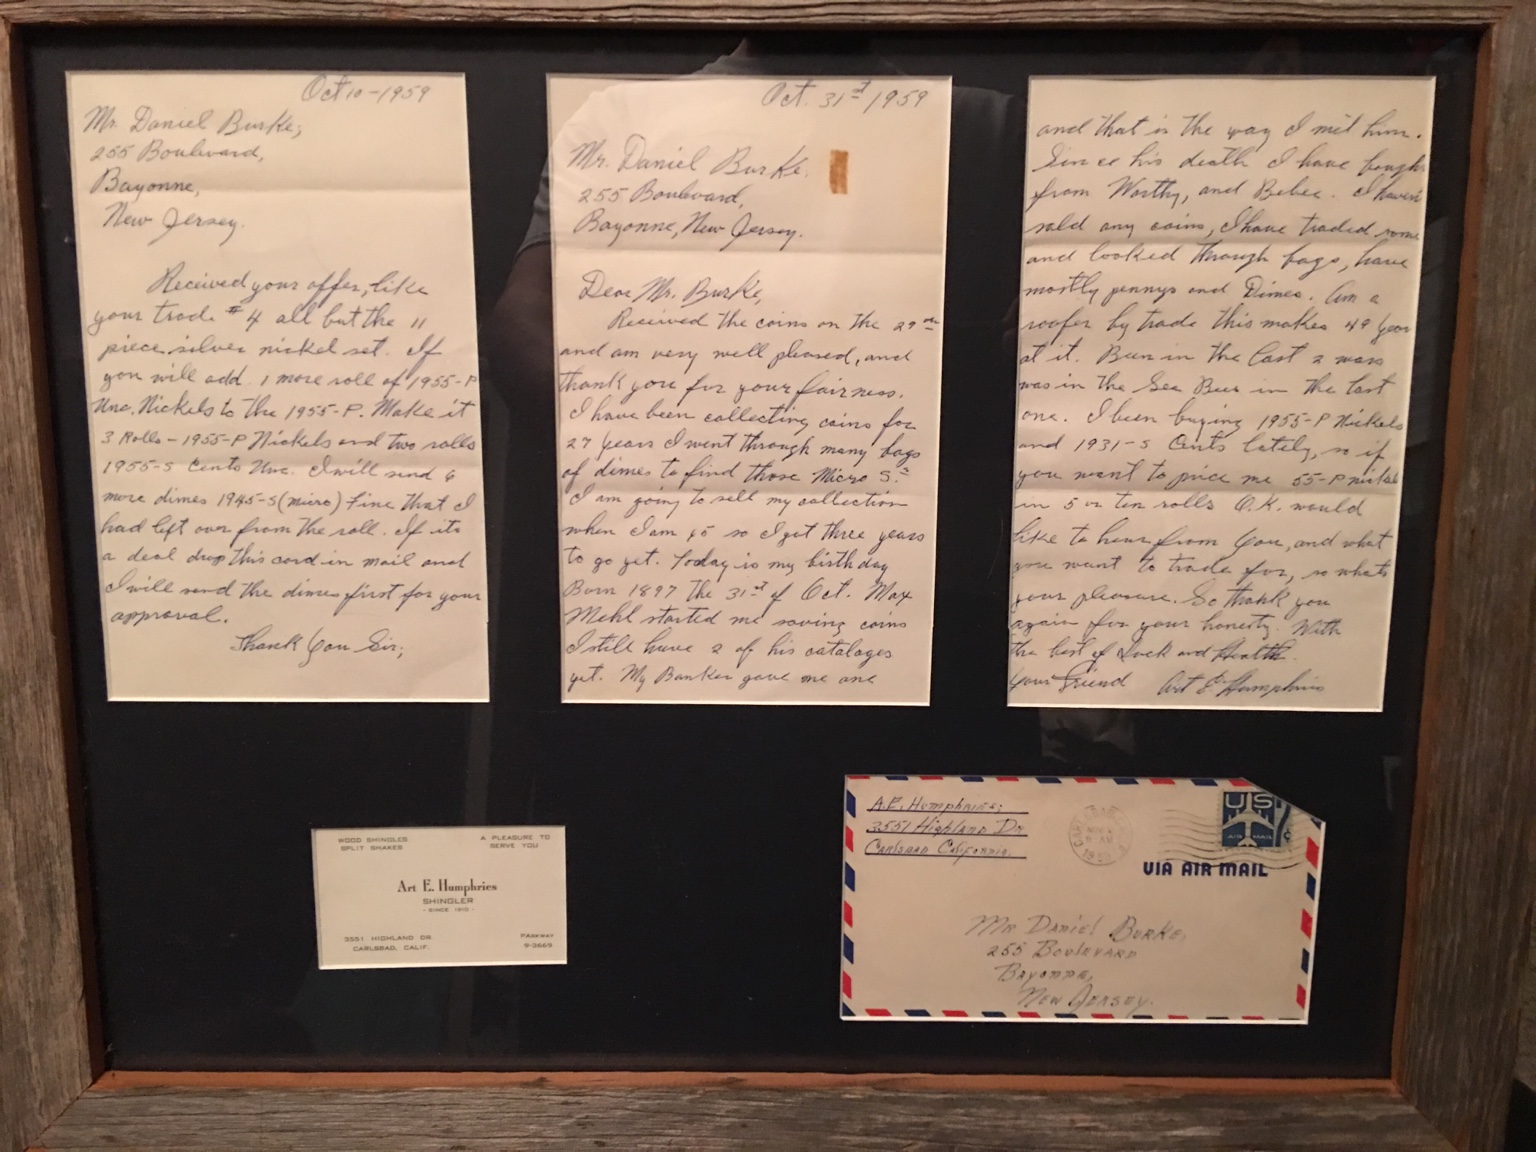 Oct 10-1959
Mr. Daniel Burke,
255 Boulevard,
Bayonne,
New Jersey.
Received your offer, like
your trade #4 all but the 11
piece silver nickel set. If
you will add 1 more roll of 1955-P
Unc. Nickels to the 1955-P. Make it
3 Rolls - 1955-P Nickels and two rolls
1955-S Cents Unc. I will send 6
more dimes 1945-S (micro) Fine that I
had left over from the roll. If its
a deal drop this card in mail and
I will send the dimes first for your
approval.
Thank You Sir;
Oct. 31st 1959
Mr. Daniel Burke.
255 Boulevard,
Bayonne, New Jersey.
Dear Mr. Burke,
Received the coins on the 29th
and am very well pleased, and
thank you for your fairness.
I have been collecting coins for
27 years I went through many bags
of dimes to find those Micro S.s
I am going to sell my collection
when I am 65 so I got three years
to go yet. Today is my birthday
Born 1897 the 31st of Oct. Max
Mehl started me saving coins
I still have 2 of his cataloges
yet. My Banker gave me one
and that is the way I met him.
Since his death I have bough
from Worthy, and Bebee. I haven't
sold any coins, I have traded some
and looked through bags, have
mostly pennys and Dimes. Am a
roofer by trade this makes 49 years
at it. Been in the last 2 wars
was in the Sea Bees in the last
one. I been buying 1955-P Nickels
and 1931-S Cents lately, so if
you want to price me 55-P nickels
in 5 or ten rolls O.K. would
like to hear from You, and what
you want to trade for, so whats
your pleasure. So thank you
again for your honesty. With
the best of Luck and Health.
Your Friend Art E. Humphries
WOOD SHINGLES
SPLIT SHAKES
A PLEASURE TO
SERVE YOU
Art E. Humphries
SHINGLER
- SINCE 1910 -
3551 HIGHLAND DR.
CARLSBAD, CALIF.
PARKWAY
9-3669
A.E. Humphries;
3551 Highland Dr
Carlsbad California.
CARLSBAD
US
AIR MAIL
VIA AIR MAIL
Mr Daniel Burke,
255 Boulevard
Bayonne,
New Jersey.